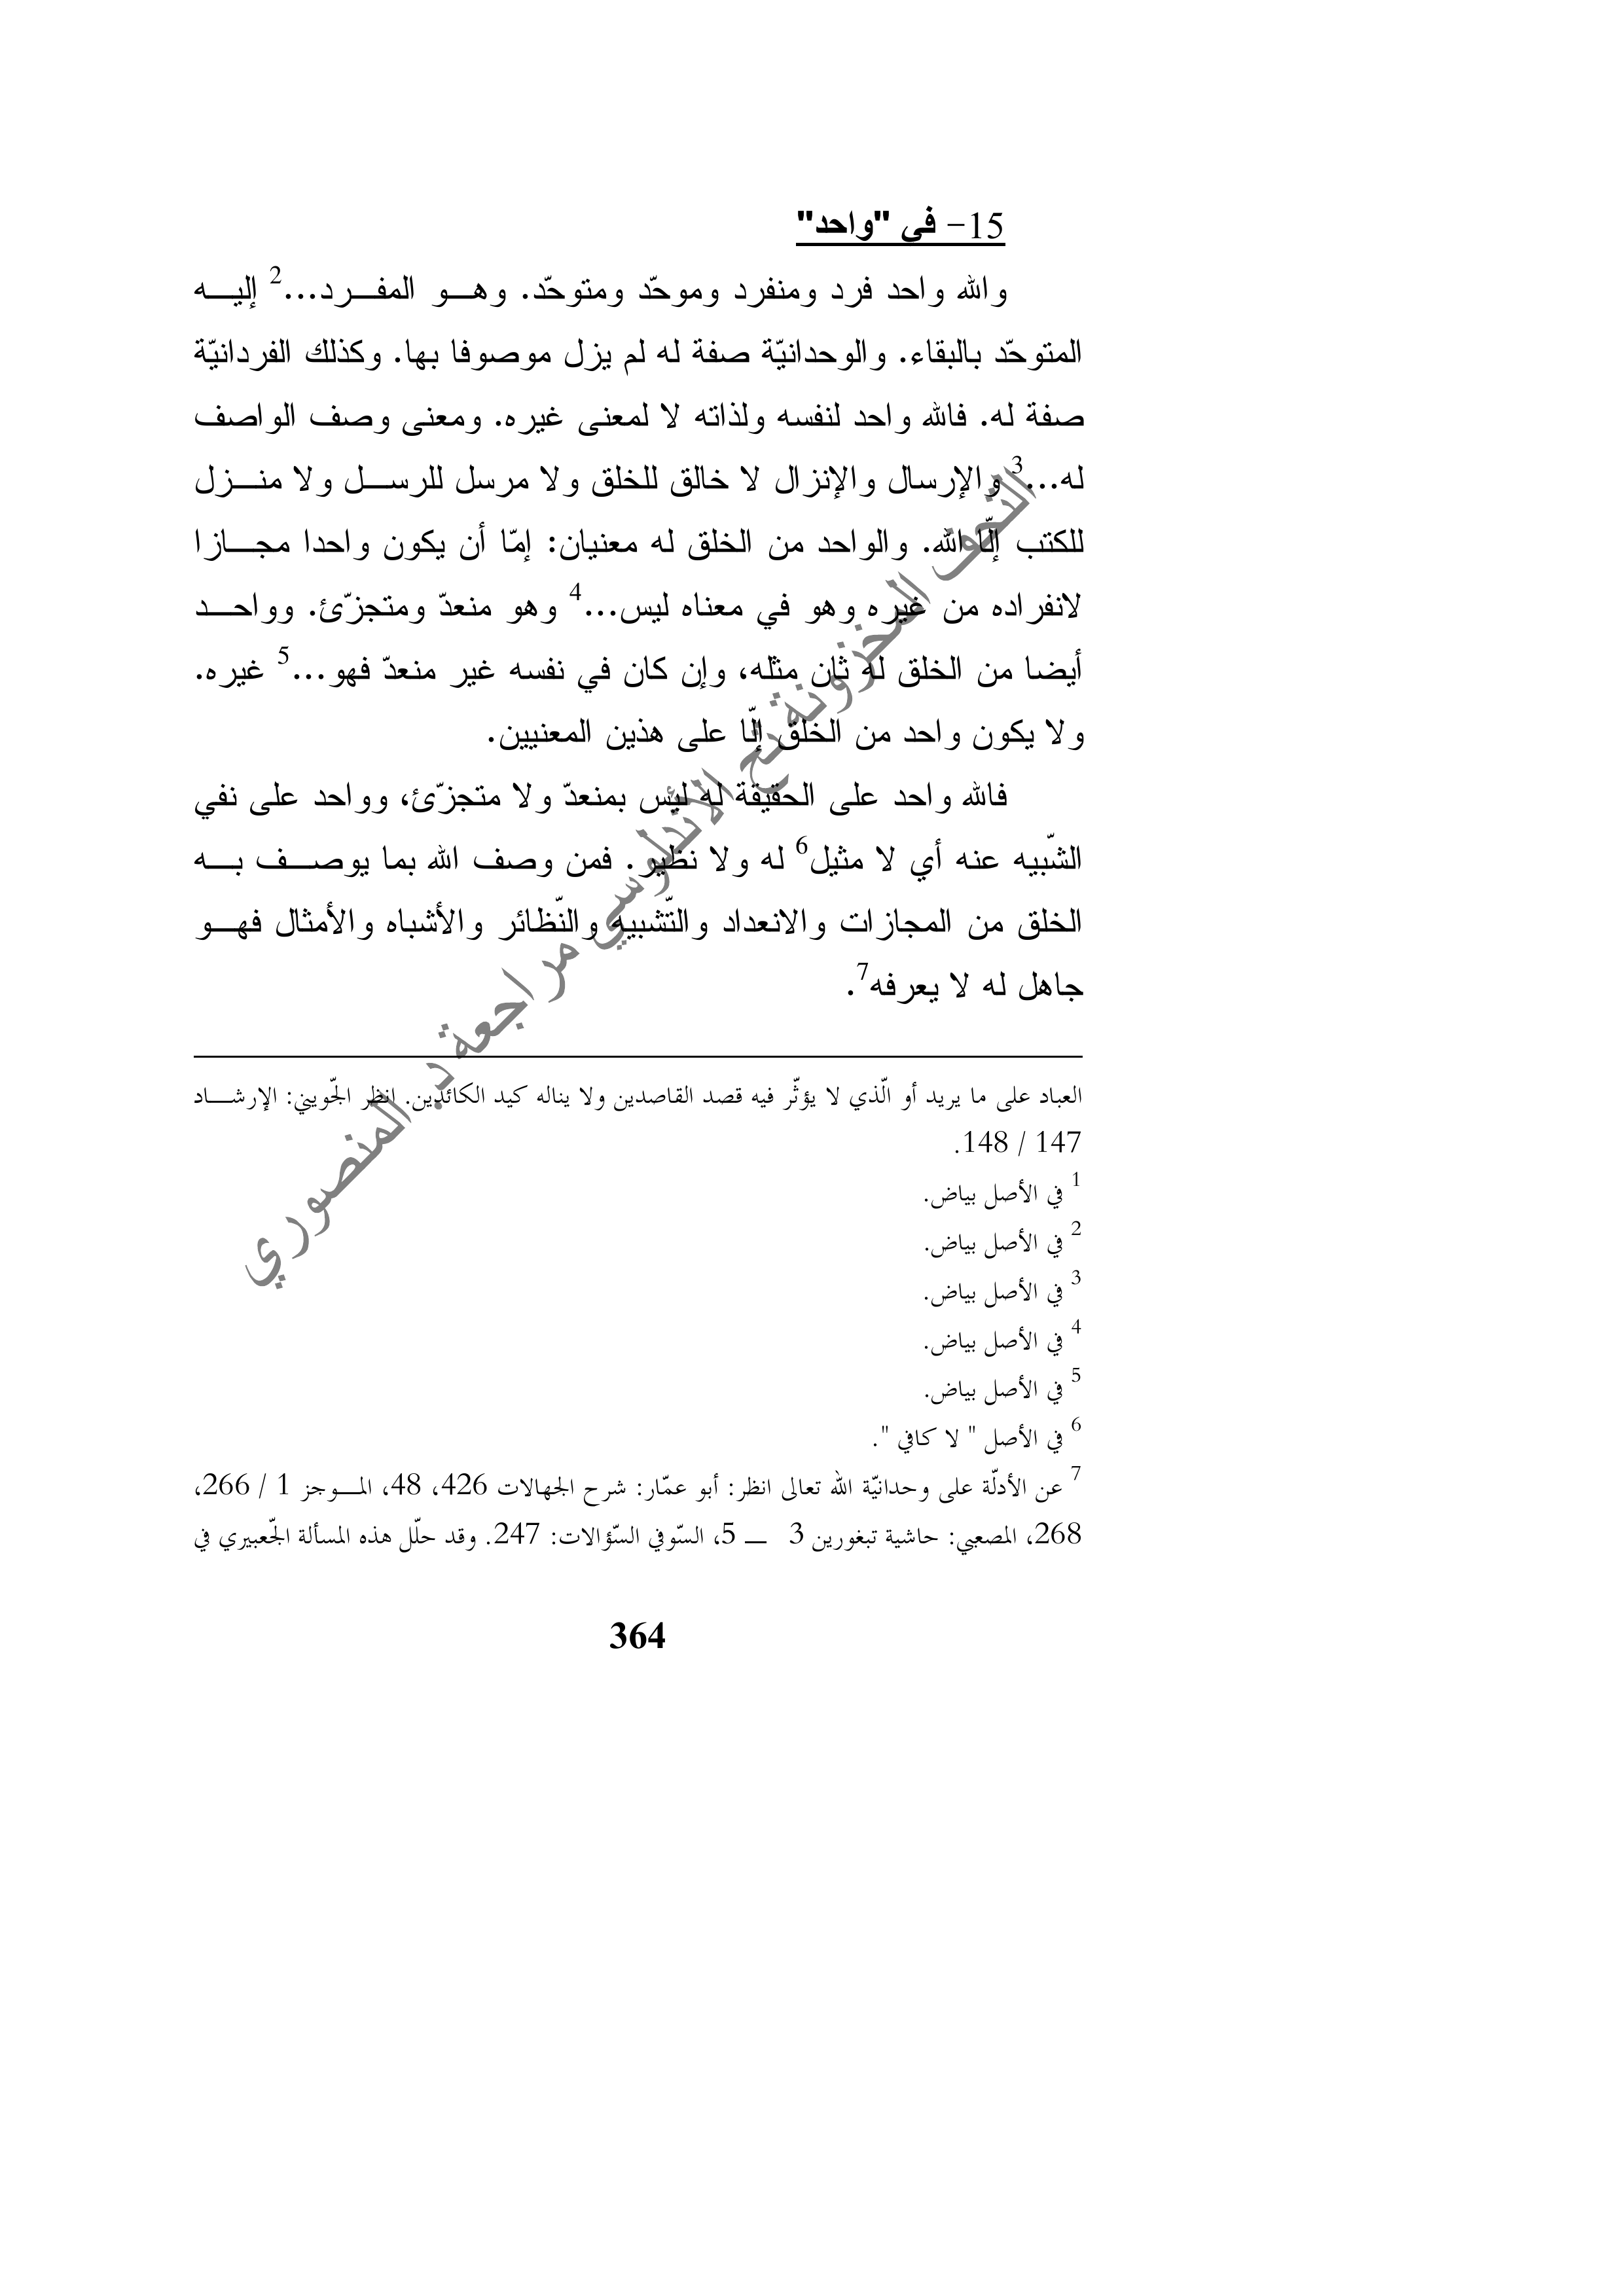 15- في "واحد"
والله واحد فرد ومنفرد وموحّد ومتوحّد. وهو المفرد...2 إليه
المتوحّد بالبقاء. والوحدانيّة صفة له لم يزل موصوفا بها. وكذلك الفردانيّة
صفة له. فالله واحد لنفسه ولذاته لا لمعنى غيره. ومعنى وصف الواصف
له...3 والإرسال والإنزال لا خالق للخلق ولا مرسل للرسل ولا منزل
للكتب إلّا الله. والواحد من الخلق له معنيان: إمّا أن يكون واحدا مجازا
لانفراده من غيره وهو في معناه ليس...4 وهو منعدّ ومتجزّئ. وواحد
أيضا من الخلق له ثان مثله، وإن كان في نفسه غير منعدّ فهو...5 غيره.
ولا يكون واحد من الخلق إلّا على هذين المعنيين.
فالله واحد على الحقيقة له ليس بمنعدّ ولا متجزّئ، وواحد على نفي
الشّبيه عنه أي لا مثيل6 له ولا نظير. فمن وصف الله بما يوصف به
الخلق من المجازات والانعداد والتّشبيه والنّظائر والأشباه والأمثال فهو
جاهل له لا يعرفه7.
العباد على ما يريد أو الّذي لا يؤثّر فيه قصد القاصدين ولا يناله كيد الكائدين. انظر الجّويني: الإرشاد
147 / 148.
1 في الأصل بياض.
2 في الأصل بياض.
3 في الأصل بياض.
4 في الأصل بياض.
5 في الأصل بياض.
6 في الأصل " لا كافي ".
7 عن الأدلّة على وحدانيّة الله تعالى انظر: أبو عمّار: شرح الجهالات 426، 48، الموجز 1 / 266،
268، المصعبي: حاشية تبغورين 3 ـ 5، السّوفي السّؤالات: 247. وقد حلّل هذه المسألة الجّعبيري في
364
التحف المخزونة تح الأندلوسي مراجعة د. المنصوري